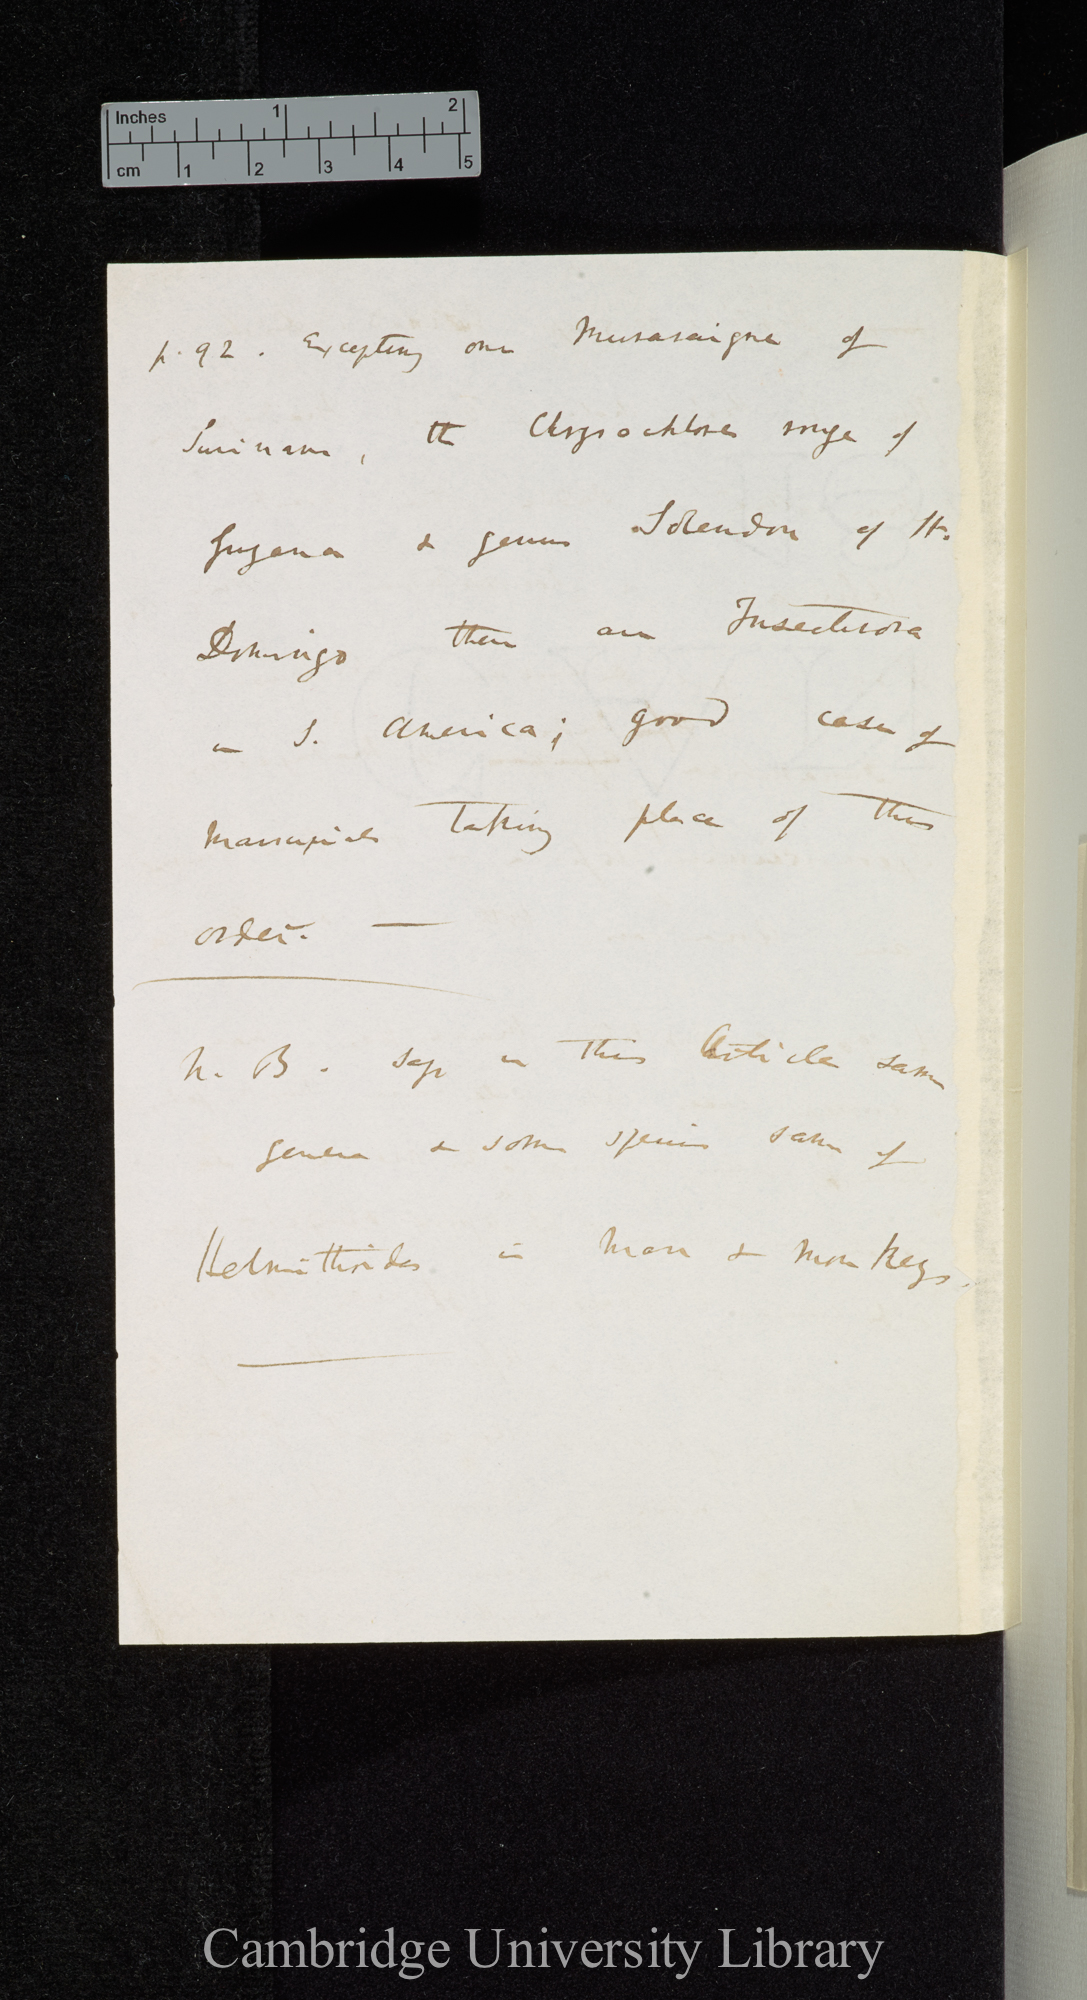 Inches 1 2
cm 1 2 3 4 5
p. 92. Excepting one Musaraigne of
Surinam, the Chrysochlore rouge of
Guyana & genus Solendon of St.
Domingo there are Insectivora
in S. America; good case of
marsupials taking place of this
order. —
N. B. says in this Article same
genera & some species same of
Helminthoides in man & monkeys.
Cambridge University Library